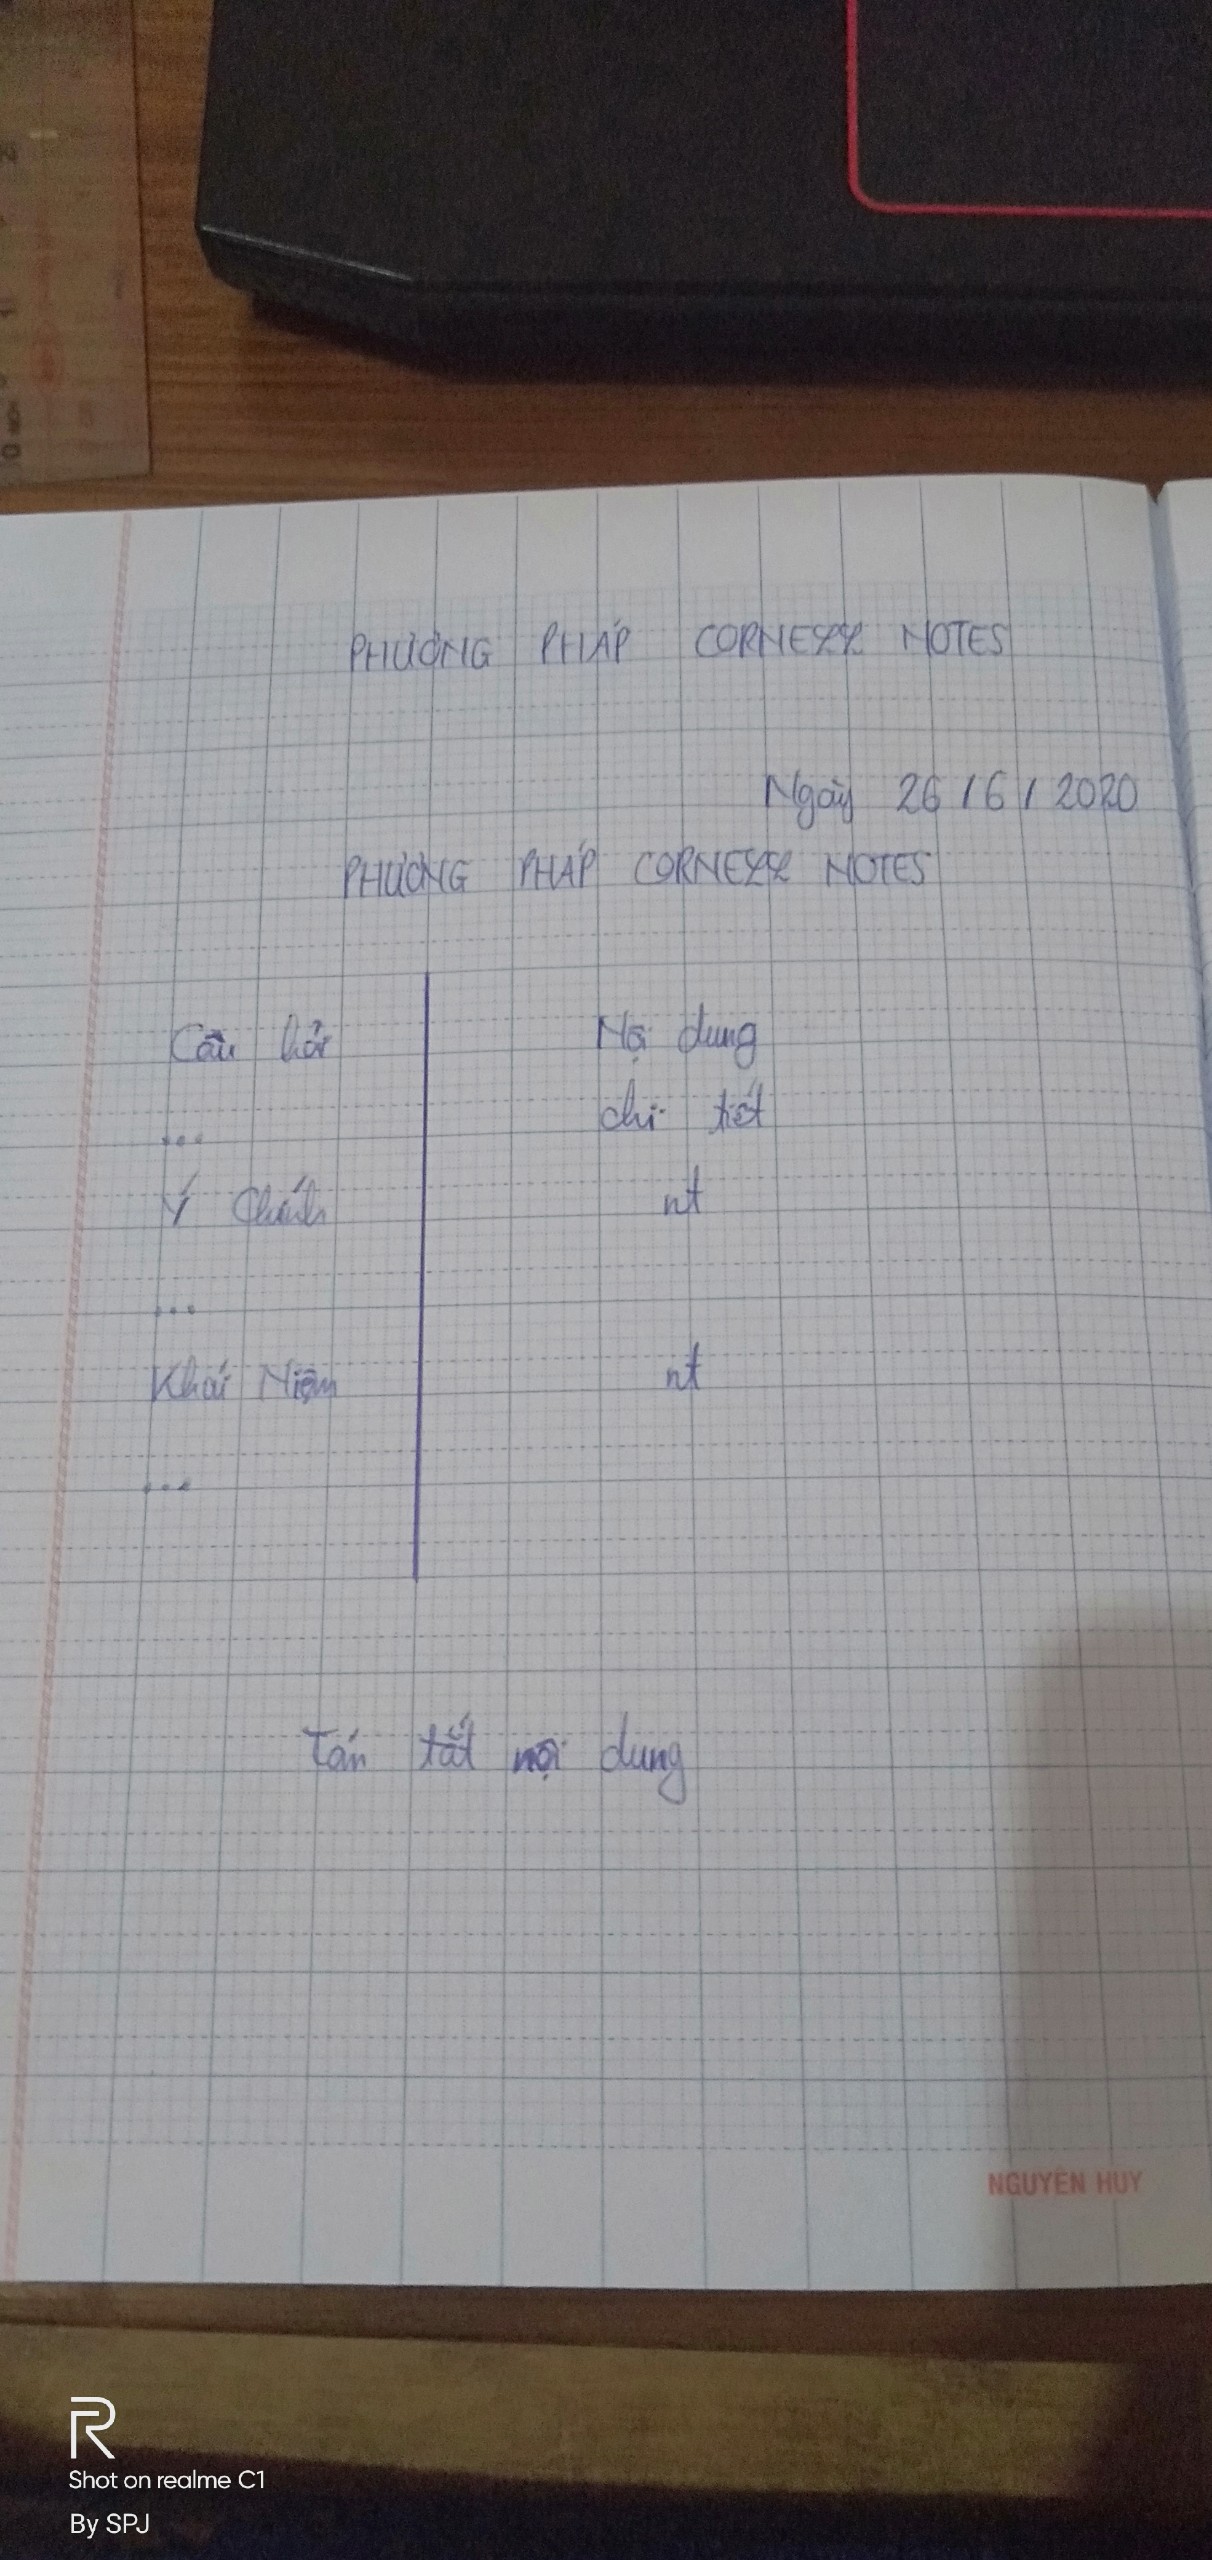 PHƯƠNG PHÁP CORNELL NOTES
Ngày 26/6/2020
PHƯƠNG PHÁP CORNELL NOTES
Câu hỏi Nội dung
... chi tiết
Ý Chính nt
...
Khái Niệm nt
...
Tóm tắt nội dung
NGUYÊN HUY
Shot on realme C1
By SPJ